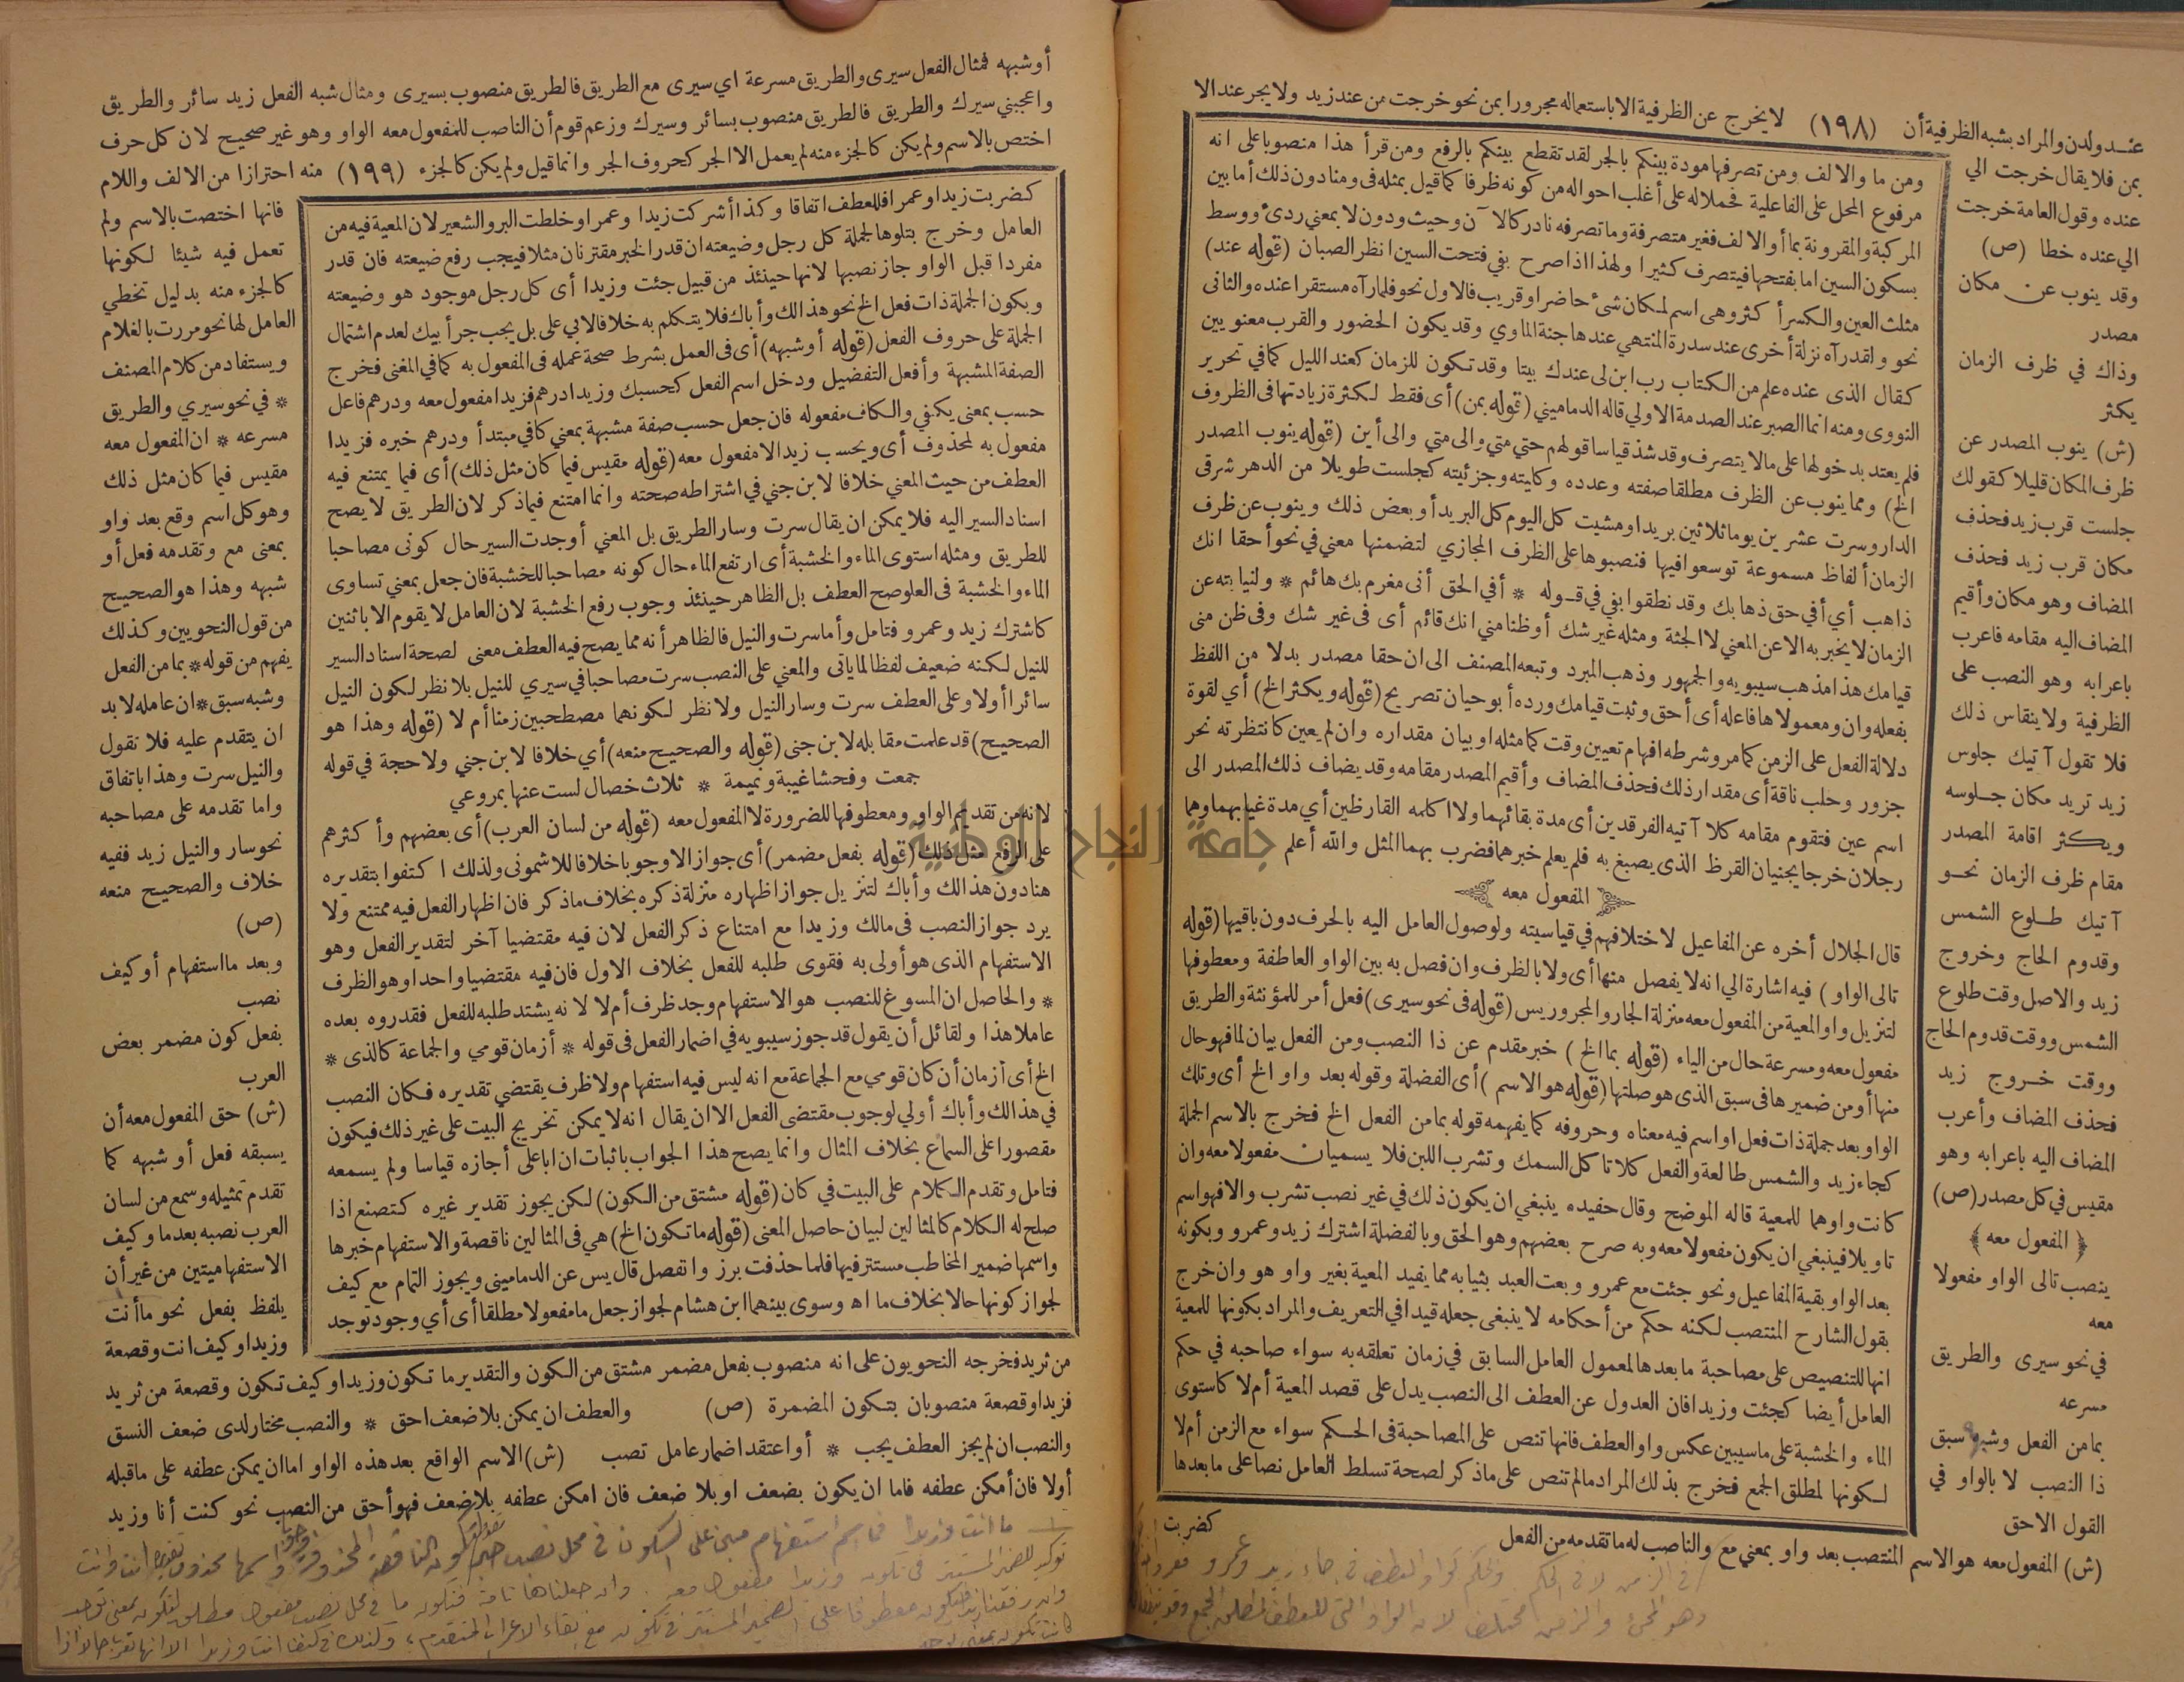 عند ولدن والمراد بشبه الظرفية أن (١٩٨) لا يخرج عن الظرفية الا باستعماله مجرورا بمن نحو خرجت من عند زيد ولا يجر عند الا
بمن فلا يقال خرجت الي
عنده وقول العامة خرجت
الي عنده خطا (ص)
وقد ينوب عن مكان
مصدر
وذاك في ظرف الزمان
يكثر
(ش) ينوب المصدر عن
ظرف المكان قليلا كقولك
جلست قرب زيد فحذف
مكان قرب زيد فحذف
المضاف وهو مكان وأقيم
المضاف اليه مقامه فاعرب
باعرابه وهو النصب على
الظرفية ولا ينقاس ذلك
فلا تقول آتيك جلوس
زيد تريد مكان جلوسه
ويكثر اقامة المصدر
مقام ظرف الزمان نحو
آتيك طلوع الشمس
وقدوم الحاج وخروج
زيد والاصل وقت طلوع
الشمس ووقت قدوم الحاج
ووقت خروج زيد
فحذف المضاف وأعرب
المضاف اليه باعرابه وهو
مقيس في كل مصدر (ص)
﴿ المفعول معه ﴾
ينصب تالى الواو مفعولا
معه
في نحو سيرى والطريق
مسرعه
بما من الفعل وشبهه سبق
ذا النصب لا بالواو في
القول الاحق
ومن ما والالف ومن تصرفها مودة بينكم بالجر لقد تقطع بينكم بالرفع ومن قرأ هذا منصوبا على انه
مرفوع المحل على الفاعلية فحملا له على أغلب احواله من كونه ظرفا كما قيل بمثله فى ومنا دون ذلك أما بين
المركبة والمقرونة بما أو الالف فغير متصرفة وما تصرفه نادر كالآن وحيث ودون لا بمعني ردئ ووسط
بسكون السين اما بفتحها فيتصرف كثيرا ولهذا اذا صرح بفي فتحت السين انظر الصبان (قوله عند)
مثلث العين والكسر أكثر وهى اسم لمكان شئ حاضر او قريب فالاول نحو فلما رآه مستقرا عنده والثانى
نحو ولقد رآه نزلة أخرى عند سدرة المنتهي عندها جنة الماوي وقد يكون الحضور والقرب معنويين
كقال الذى عنده علم من الكتاب رب ابن لى عندك بيتا وقد تكون للزمان كعند الليل كما في تحرير
النووى ومنه انما الصبر عند الصدمة الاولي قاله الدماميني (قوله بمن) أى فقط لكثرة زيادتها فى الظروف
فلم يعتد بدخولها على مالا يتصرف وقد شذ قياسا قولهم حتي متي والى متي والى أين (قوله ينوب المصدر
الخ) ومما ينوب عن الظرف مطلقا صفته وعدده وكليته وجزئيته كجلست طويلا من الدهر شرقى
الدار وسرت عشرين يوما ثلاثين بريدا ومشيت كل اليوم كل البريد أو بعض ذلك وينوب عن ظرف
الزمان ألفاظ مسموعة توسعوا فيها فنصبوها على الظرف المجازي لتضمنها معني في نحو أحقا انك
ذاهب أي أفي حق ذهابك وقد نطقوا بفي في قوله * أفي الحق أنى مغرم بك هائم * ولنيابته عن
الزمان لا يخبر به الا عن المعني لا الجثة ومثله غير شك أو ظنا مني انك قائم أى فى غير شك وفى ظن منى
قيامك هذا مذهب سيبويه والجمهور وذهب المبرد وتبعه المصنف الى ان حقا مصدر بدلا من اللفظ
بفعله وان ومعمولاها فاعله أى أحق وثبت قيامك ورده أبو حيان تصريح (قوله ويكثر الخ) أي لقوة
دلالة الفعل على الزمن كما مر وشرطه افهام تعيين وقت كما مثله او بيان مقداره وان لم يعين كانتظرته نحر
جزور وحلب ناقة أى مقدار ذلك فحذف المضاف وأقيم المصدر مقامه وقد يضاف ذلك المصدر الى
اسم عين فتقوم مقامه كلا آتيه الفرقدين أى مدة بقائهما ولا اكلمه القارظين أي مدة غيابهما وهما
رجلان خرجا يجنيان القرظ الذى يصبغ به فلم يعلم خبرهما فضرب بهما المثل والله أعلم
المفعول معه
قال الجلال أخره عن المفاعيل لاختلافهم في قياسيته ولوصول العامل اليه بالحرف دون باقيها (قوله
تالى الواو) فيه اشارة الي انه لا يفصل منها أى ولا بالظرف وان فصل به بين الواو العاطفة ومعطوفها
لتنزيل واو المعية من المفعول معه منزلة الجار والمجرور يس (قوله فى نحو سيرى) فعل أمر للمؤنثة والطريق
مفعول معه ومسرعة حال من الياء (قوله بما الخ) خبر مقدم عن ذا النصب ومن الفعل بيان لما فهو حال
منها أو من ضميرها فى سبق الذى هو صلتها (قوله هو الاسم) أى الفضلة وقوله بعد واو الخ أى وتلك
الواو بعد جملة ذات فعل او اسم فيه معناه وحروفه كما يفهمه قوله بما من الفعل الخ فخرج بالاسم الجملة
كجاء زيد والشمس طالعة والفعل كلا تاكل السمك وتشرب اللبن فلا يسميان مفعولا معه وان
كانت واوهما للمعية قاله الموضح وقال حفيده ينبغي ان يكون ذلك في غير نصب تشرب والا فهو اسم
تاويلا فينبغي ان يكون مفعولا معه وبه صرح بعضهم وهو الحق وبالفضلة اشترك زيد وعمرو وبكونه
بعد الواو بقية المفاعيل ونحو جئت مع عمرو وبعت العبد بثيابه مما يفيد المعية بغير واو هو وان خرج
بقول الشارح المنتصب لكنه حكم من أحكامه لا ينبغى جعله قيدا في التعريف والمراد بكونها للمعية
انها للتنصيص على مصاحبة ما بعدها لمعمول العامل السابق في زمان تعلقه به سواء صاحبه في حكم
العامل أيضا كجئت وزيدا فان العدول عن العطف الى النصب يدل على قصد المعية أم لا كاستوى
الماء والخشبة على ما سيبين عكس واو العطف فانها تنص على المصاحبة فى الحكم سواء مع الزمن أم لا
لكونها لمطلق الجمع فخرج بذلك المراد مالم تنص على ما ذكر لصحة تسلط العامل نصا على ما بعدها
كضربت
(ش) المفعول معه هو الاسم المنتصب بعد واو بمعني مع والناصب له ما تقدمه من الفعل
أو شبهه فمثال الفعل سيرى والطريق مسرعة اي سيرى مع الطريق فالطريق منصوب بسيرى ومثال شبه الفعل زيد سائر والطريق
واعجبني سيرك والطريق فالطريق منصوب بسائر وسيرك وزعم قوم أن الناصب للمفعول معه الواو وهو غير صحيح لان كل حرف
اختص بالاسم ولم يكن كالجزء منه لم يعمل الا الجر كحروف الجر وانما قيل ولم يكن كالجزء (١٩٩) منه احترازا من الالف واللام
فانها اختصت بالاسم ولم
تعمل فيه شيئا لكونها
كالجزء منه بدليل تخطي
العامل لها نحو مررت بالغلام
ويستفاد من كلام المصنف
* في نحو سيري والطريق
مسرعه * ان المفعول معه
مقيس فيما كان مثل ذلك
وهو كل اسم وقع بعد واو
بمعنى مع وتقدمه فعل أو
شبهه وهذا هو الصحيح
من قول النحويين وكذلك
يفهم من قوله * بما من الفعل
وشبه سبق * ان عامله لا بد
ان يتقدم عليه فلا تقول
والنيل سرت وهذا باتفاق
واما تقدمه على مصاحبه
نحو سار والنيل زيد ففيه
خلاف والصحيح منعه
(ص)
وبعد ما استفهام أو كيف
نصب
بفعل كون مضمر بعض
العرب
(ش) حق المفعول معه أن
يسبقه فعل أو شبهه كما
تقدم تمثيله وسمع من لسان
العرب نصبه بعد ما وكيف
الاستفهاميتين من غير أن
يلفظ بفعل نحو ما أنت
وزيدا وكيف انت وقصعة
كضربت زيدا وعمرا فللعطف اتفاقا وكذا أشركت زيدا وعمرا وخلطت البر والشعير لان المعية فيه من
العامل وخرج بتلوها لجملة كل رجل وضيعته ان قدر الخبر مقترنان مثلا فيجب رفع ضيعته فان قدر
مفردا قبل الواو جاز نصبها لانها حينئذ من قبيل جئت وزيدا أى كل رجل موجود هو وضيعته
وبكون الجملة ذات فعل الخ نحو هذا لك وأباك فلا يتكلم به خلافا لابي على بل يجب جر أبيك لعدم اشتمال
الجملة على حروف الفعل (قوله أو شبهه) أى فى العمل بشرط صحة عمله فى المفعول به كما في المغنى فخرج
الصفة المشبهة وأفعل التفضيل ودخل اسم الفعل كحسبك وزيدا درهم فزيدا مفعول معه ودرهم فاعل
حسب بمعنى يكفي والكاف مفعوله فان جعل حسب صفة مشبهة بمعني كافي مبتدأ ودرهم خبره فزيدا
مفعول به لمحذوف أى ويحسب زيدا لا مفعول معه (قوله مقيس فيما كان مثل ذلك) أى فيما يمتنع فيه
العطف من حيث المعني خلافا لابن جني في اشتراطه صحته وانما امتنع فيما ذكر لان الطريق لا يصح
اسناد السير اليه فلا يمكن ان يقال سرت وسار الطريق بل المعني أوجدت السير حال كونى مصاحبا
للطريق ومثله استوى الماء والخشبة أى ارتفع الماء حال كونه مصاحبا للخشبة فان جعل بمعني تساوى
الماء والخشبة فى العلو صح العطف بل الظاهر حينئذ وجوب رفع الخشبة لان العامل لا يقوم الا باثنين
كاشترك زيد وعمرو فتامل وأما سرت والنيل فالظاهر أنه مما يصح فيه العطف معنى لصحة اسناد السير
للنيل لكنه ضعيف لفظا لما ياتى والمعني على النصب سرت مصاحبا في سيري للنيل بلا نظر لكون النيل
سائرا أولا وعلى العطف سرت وسار النيل ولا نظر لكونهما مصطحبين زمنا أم لا (قوله وهذا هو
الصحيح) قد علمت مقابله لابن جنى (قوله والصحيح منعه) أي خلافا لابن جني ولا حجة في قوله
جمعت وفحشا غيبة ونميمة * ثلاث خصال لست عنها بمرعوي
لانه من تقديم الواو ومعطوفها للضرورة لا المفعول معه (قوله من لسان العرب) أى بعضهم وأكثرهم
على الرفع مثل ذلك (قوله بفعل مضمر) أى جوازا لا وجوبا خلافا للاشمونى ولذلك اكتفوا بتقديره
هنا دون هذا لك وأباك لتنزيل جواز اظهاره منزلة ذكره بخلاف ما ذكر فان اظهار الفعل فيه ممتنع ولا
يرد جواز النصب فى مالك وزيدا مع امتناع ذكر الفعل لان فيه مقتضيا آخر لتقدير الفعل وهو
الاستفهام الذى هو أولى به فقوى طلبه للفعل بخلاف الاول فان فيه مقتضيا واحدا وهو الظرف
* والحاصل ان المسوغ للنصب هو الاستفهام وجد ظرف أم لا لانه يشتد طلبه للفعل فقدروه بعده
عاملا هذا ولقائل أن يقول قد جوز سيبويه في اضمار الفعل فى قوله * أزمان قومي والجماعة كالذى *
الخ أى أزمان أن كان قومي مع الجماعة مع انه ليس فيه استفهام ولا ظرف يقتضي تقديره فكان النصب
في هذا لك وأباك أولي لوجوب مقتضى الفعل الا ان يقال انه لا يمكن تخريج البيت على غير ذلك فيكون
مقصورا على السماع بخلاف المثال وانما يصح هذا الجواب باثبات ان ابا على أجازه قياسا ولم يسمعه
فتامل وتقدم الكلام على البيت في كان (قوله مشتق من الكون) لكن يجوز تقدير غيره كتصنع اذا
صلح له الكلام كالمثالين لبيان حاصل المعنى (قوله ما تكون الخ) هي فى المثالين ناقصة والاستفهام خبرها
واسمها ضمير المخاطب مستتر فيها فلما حذفت برز وانفصل قال يس عن الدماميني ويجوز التمام مع كيف
لجواز كونها حالا بخلاف ما اه وسوى بينهما ابن هشام لجواز جعل ما مفعولا مطلقا أى أي وجود توجد
من ثريد فخرجه النحويون على انه منصوب بفعل مضمر مشتق من الكون والتقدير ما تكون وزيدا وكيف تكون وقصعة من ثريد
فزيدا وقصعة منصوبان بتكون المضمرة (ص) والعطف ان يمكن بلا ضعف احق * والنصب مختار لدى ضعف النسق
والنصب ان لم يجز العطف يجب * أو اعتقد اضمار عامل تصب (ش) الاسم الواقع بعد هذه الواو اما ان يمكن عطفه على ما قبله
أولا فان أمكن عطفه فاما ان يكون بضعف او بلا ضعف فان امكن عطفه بلا ضعف فهو أحق من النصب نحو كنت أنا وزيد
جامعة النجاح الوطنية